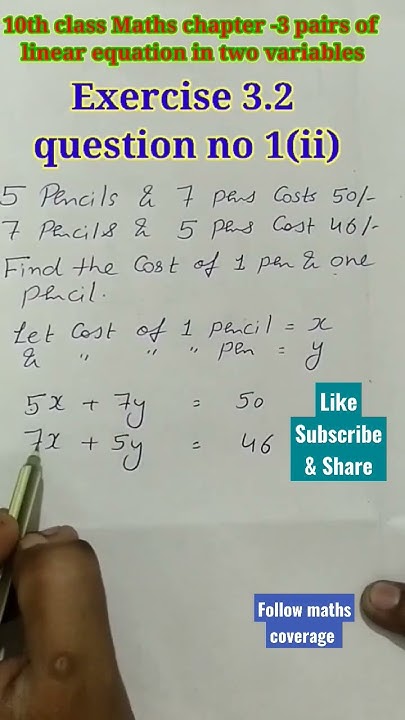 10th class Maths chapter -3 pairs of
linear equation in two variables
Exercise 3.2
question no 1(ii)
5 Pencils & 7 pens Costs 50/-
7 Pencils & 5 pens Cost 46/-
Find the Cost of 1 pen & one
pencil.
Let Cost of 1 pencil = x
& " " " pen = y
5x + 7y = 50
7x + 5y = 46
Like
Subscribe
& Share
Follow maths
coverage